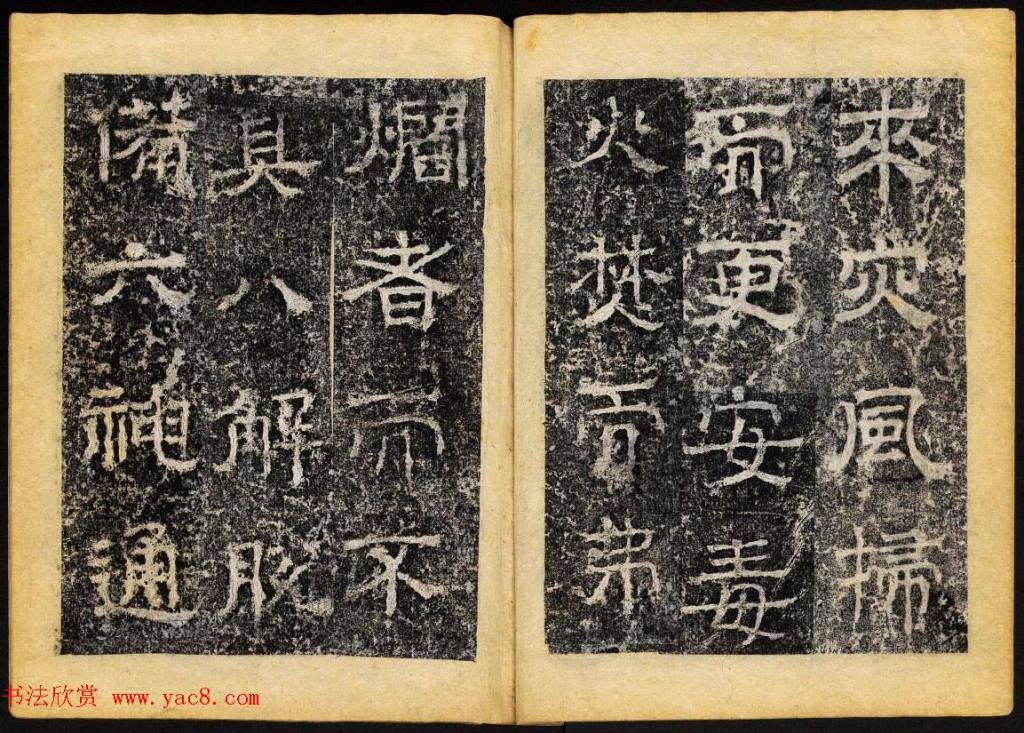 來灾風掃
而更安毒
火焚而弗
爓者而不
具八解脫
備六神通
书法欣赏 www.yac8.com